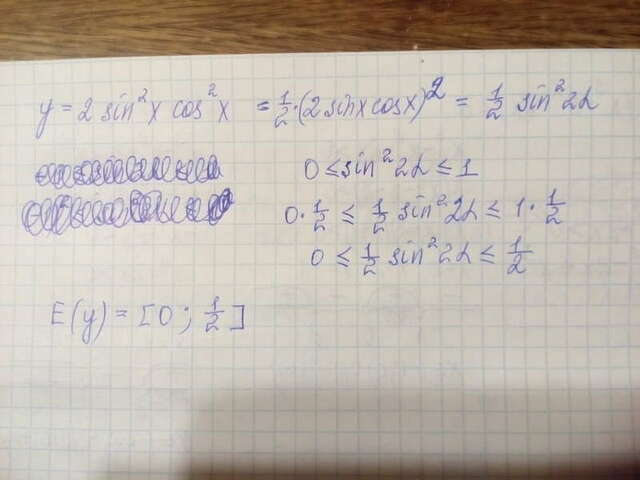 y = 2 sin²x cos²x = 1/2·(2 sinx cosx)² = 1/2 sin²2α
0 ≤ sin²2α ≤ 1
0·1/2 ≤ 1/2 sin²2α ≤ 1·1/2
0 ≤ 1/2 sin²2α ≤ 1/2
E(y) = [0; 1/2]